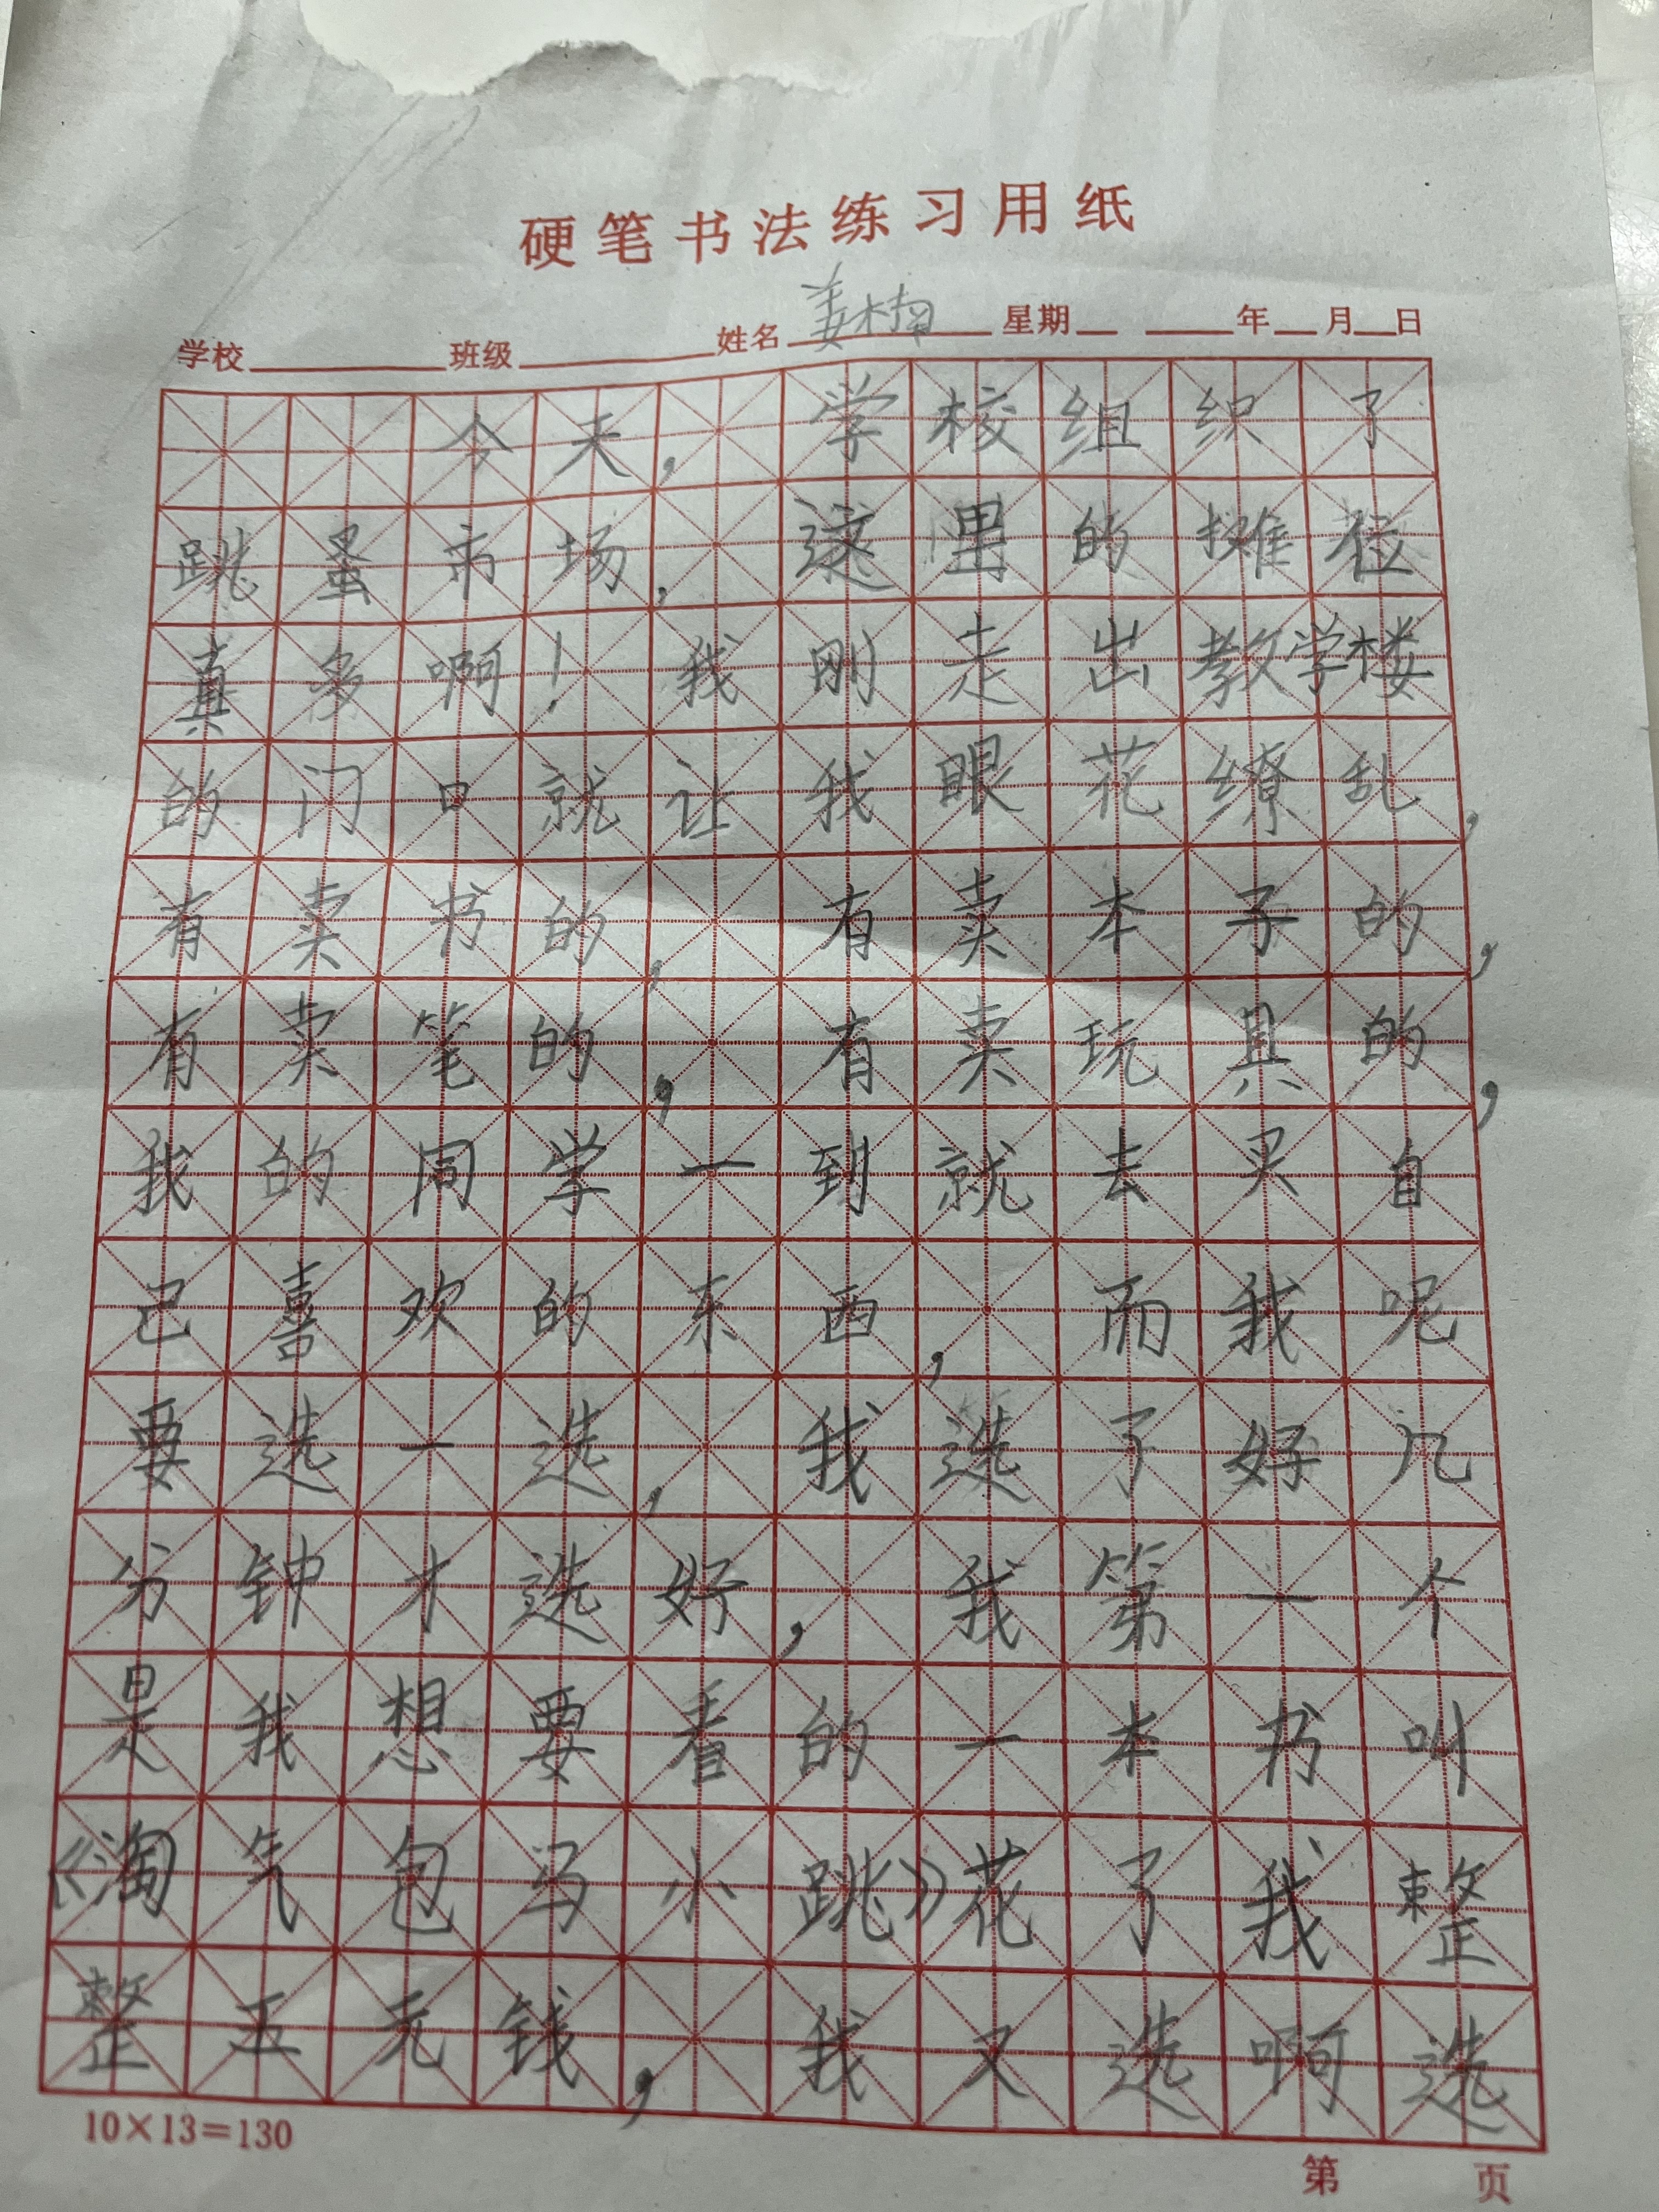 硬笔书法练习用纸
学校 班级 姓名 姜楠 星期 年 月 日
今天，学校组织了
跳蚤市场，这里的摊位
真多啊！我刚走出教学楼
的门口就让我眼花缭乱，
有卖书的，有卖本子的，
有卖笔的，有卖玩具的，
我的同学一到就去买自
己喜欢的东西，而我呢
要选一选，我选了好几
分钟才选好，我第一个
是我想要看的一本书叫
《淘气包马小跳》花了我整
整五元钱，我又选啊选
10×13=130
第 页